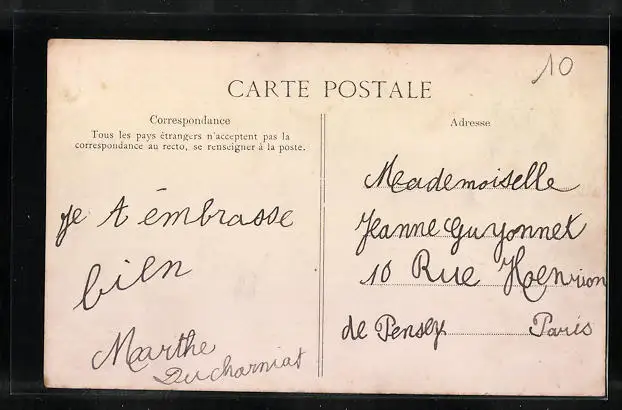 10
CARTE POSTALE
Correspondance
Tous les pays étrangers n'acceptent pas la
correspondance au recto, se renseigner à la poste.
Adresse
je t émbrasse
bien
Marthe
Ducharniat
Mademoiselle
Jeanne Guyonnet
10 Rue Henrion
de Pensey Paris